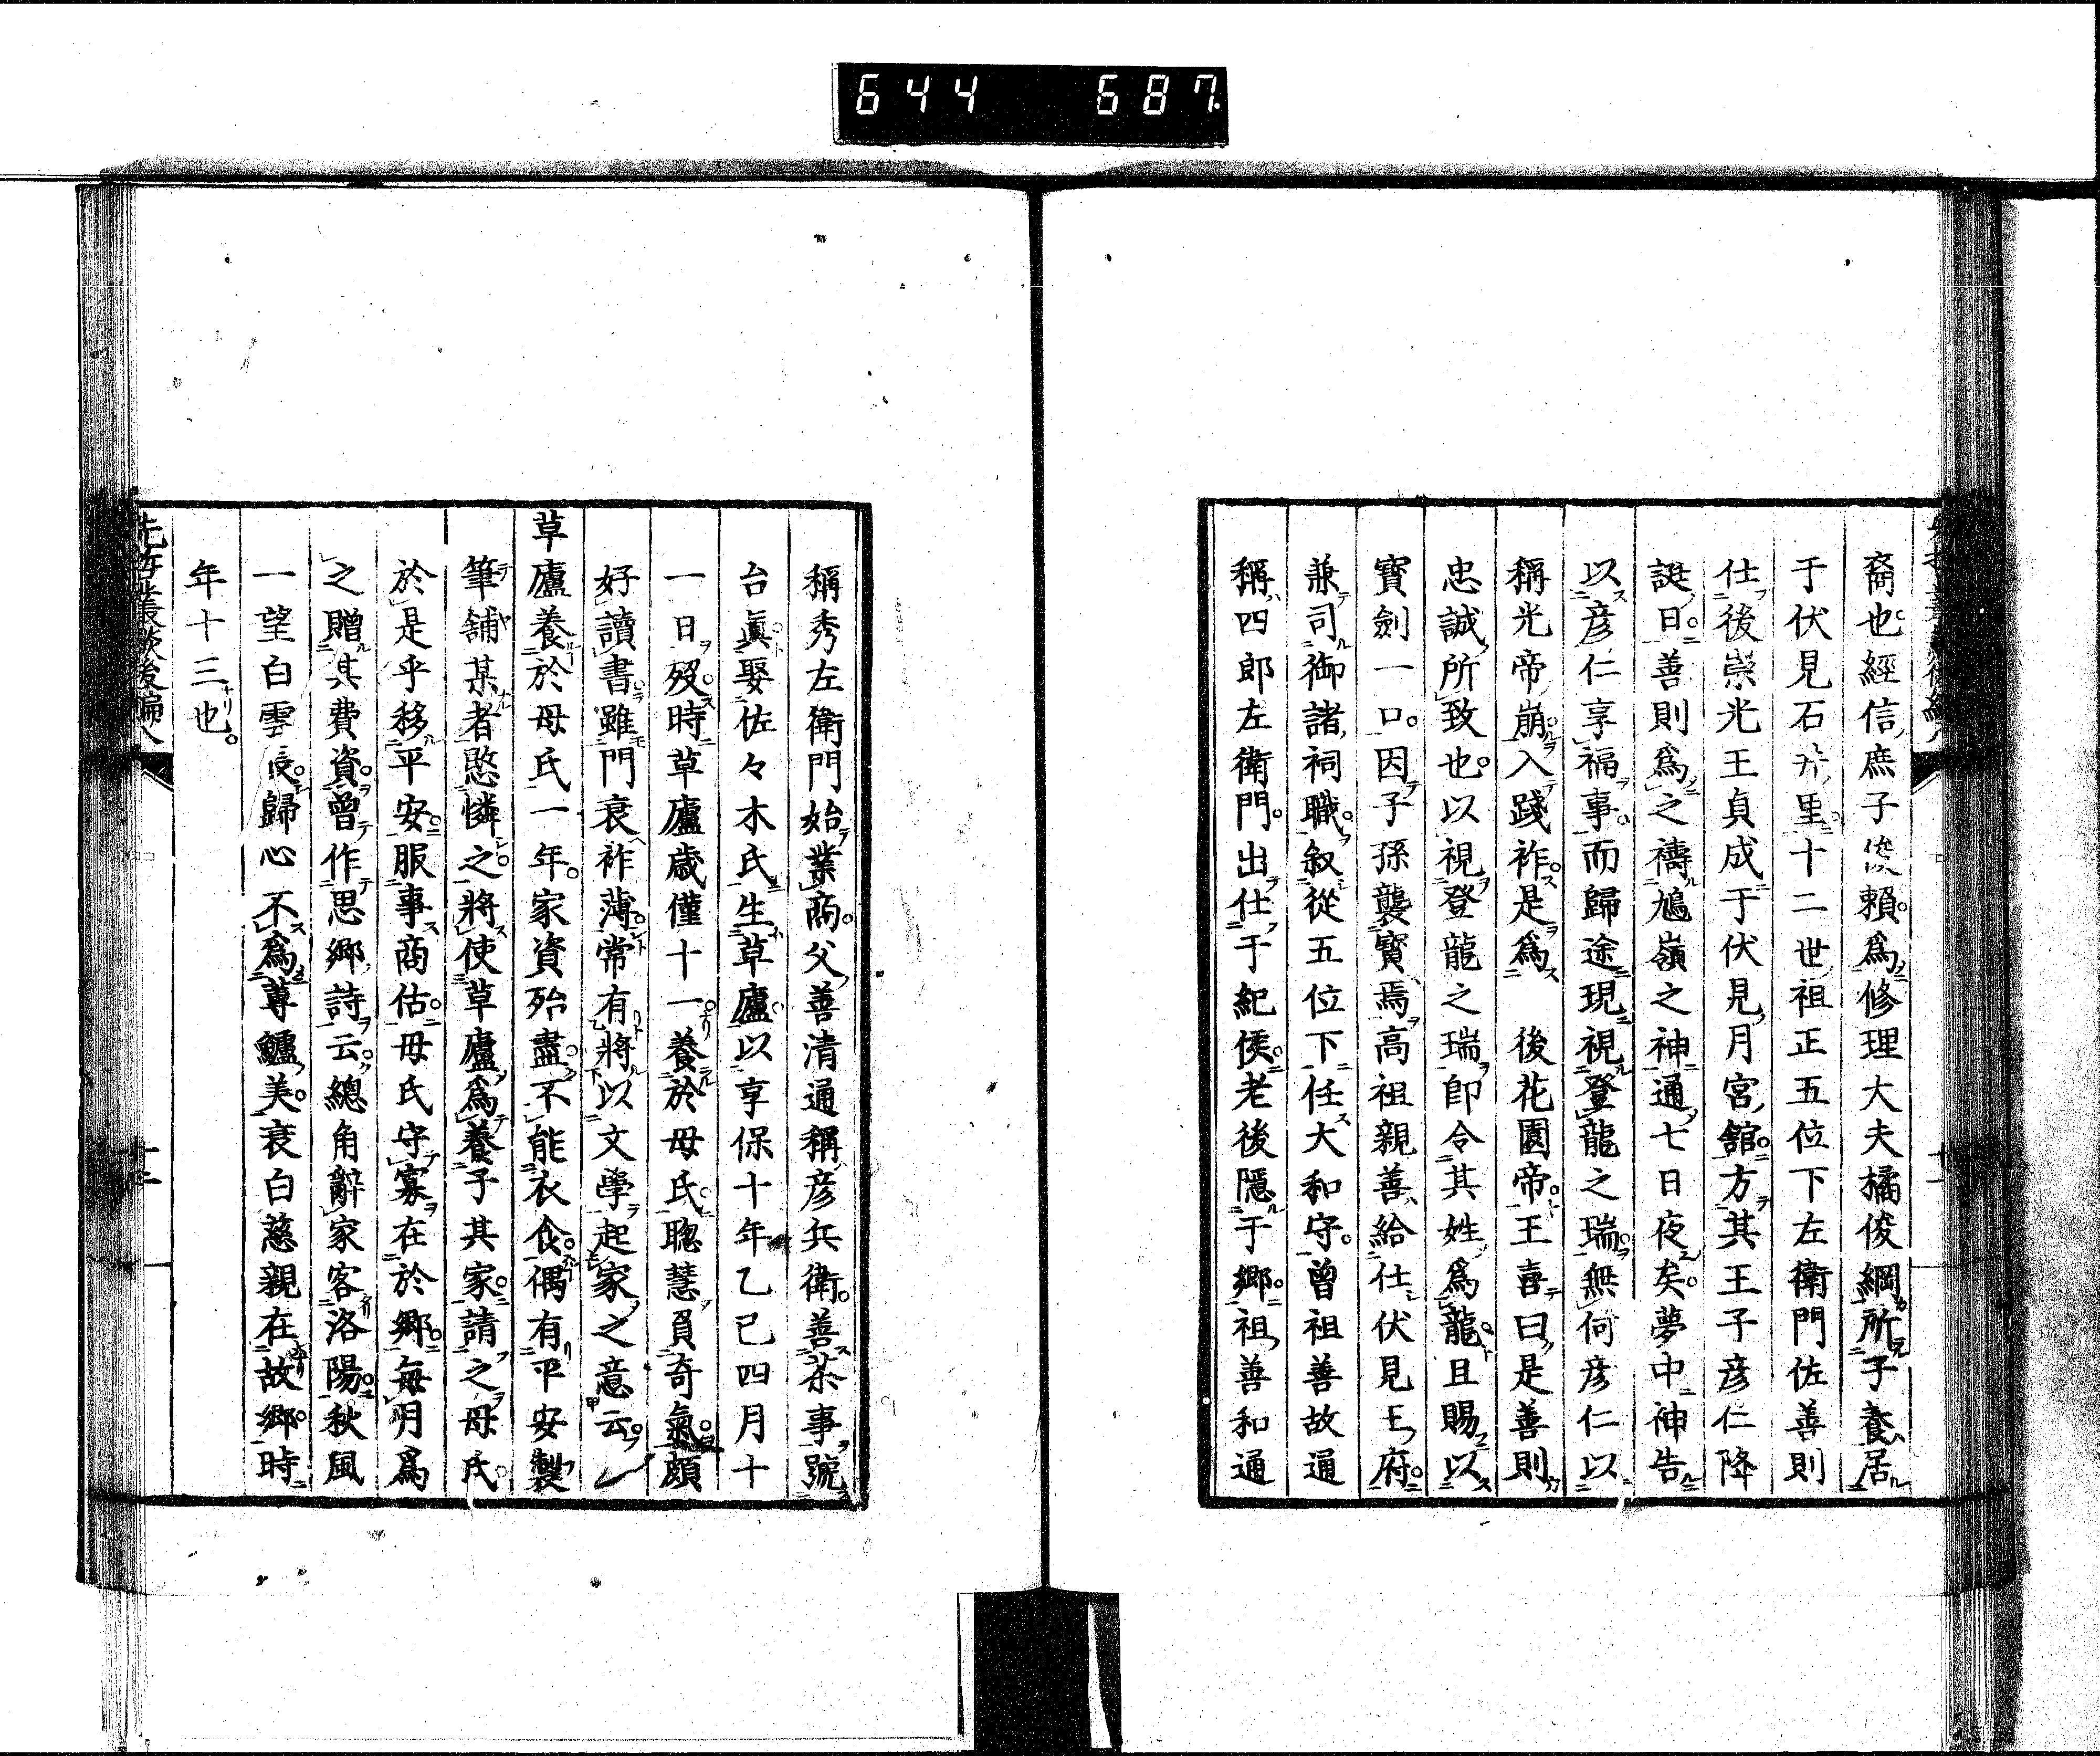 644 687
裔也經信庶子俊賴爲修理大夫橘俊綱所子養居
于伏見石井里十二世祖正五位下左衛門佐善則
仕後崇光王貞成于伏見月宮舘方其王子彦仁降
誕日善則爲之禱鳩嶺之神通七日夜矣夢中神告
以彦仁享福事而歸途現視登龍之瑞無何彦仁以
稱光帝崩入踐祚是爲 後花園帝王喜曰是善則
忠誠所致也以視登龍之瑞即令其姓爲龍且賜以
寶劍一口因子孫襲寶焉高祖親善給仕伏見王府
兼司御諸祠職叙從五位下任大和守曾祖善故通
稱四郎左衛門出仕于紀侯老後隱于郷祖善和通
稱秀左衛門始業商父善清通稱彦兵衛善茶事號
台眞娶佐々木氏生草廬以享保十年乙巳四月十
一日歿時草廬歳僅十一養於母氏聰慧負奇氣頗
好讀書雖門衰祚薄常有將以文學起家之意云
草廬養於母氏一年家資殆盡不能衣食偶有平安製
筆舗某者愍憐之將使草廬爲養子其家請之母氏
於是乎移平安服事商估母氏守寡在於郷毎月爲
之贈其費資曾作思郷詩云總角辭家客洛陽秋風
一望白雲長歸心不爲蓴鱸美衰白慈親在故郷時
年十三也
先哲叢談後編 八
十二